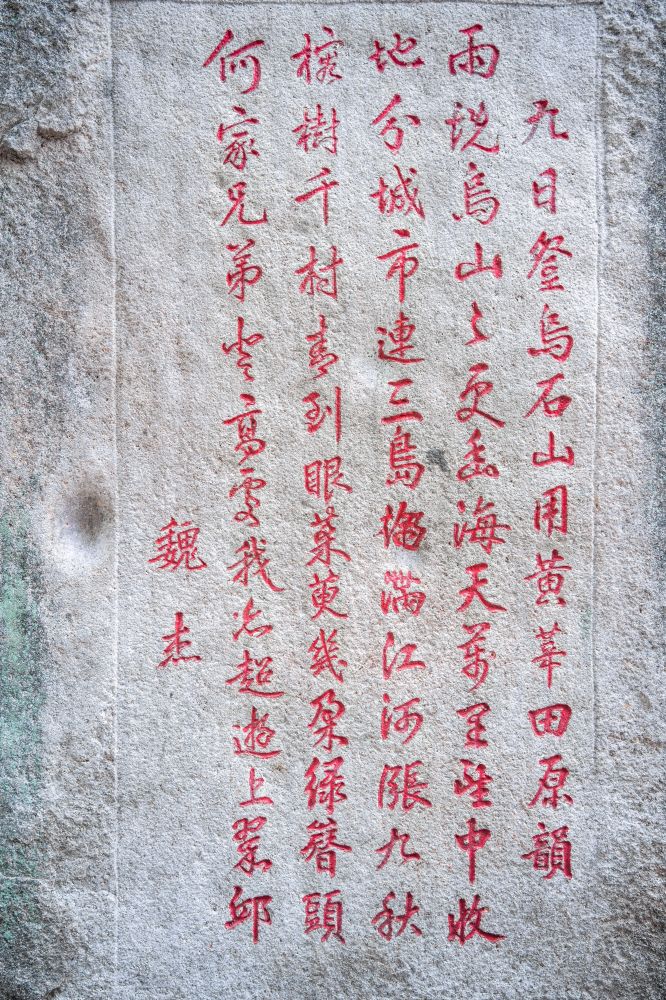 九日登烏石山用黃莘田原韻
雨洗烏山々更幽海天萬里望中收
地分城市連三島滿江河漲九秋
榕樹千村青到眼茱萸幾朵綠簪頭
何家兄弟登高處我亦超遊上翠邱
魏杰